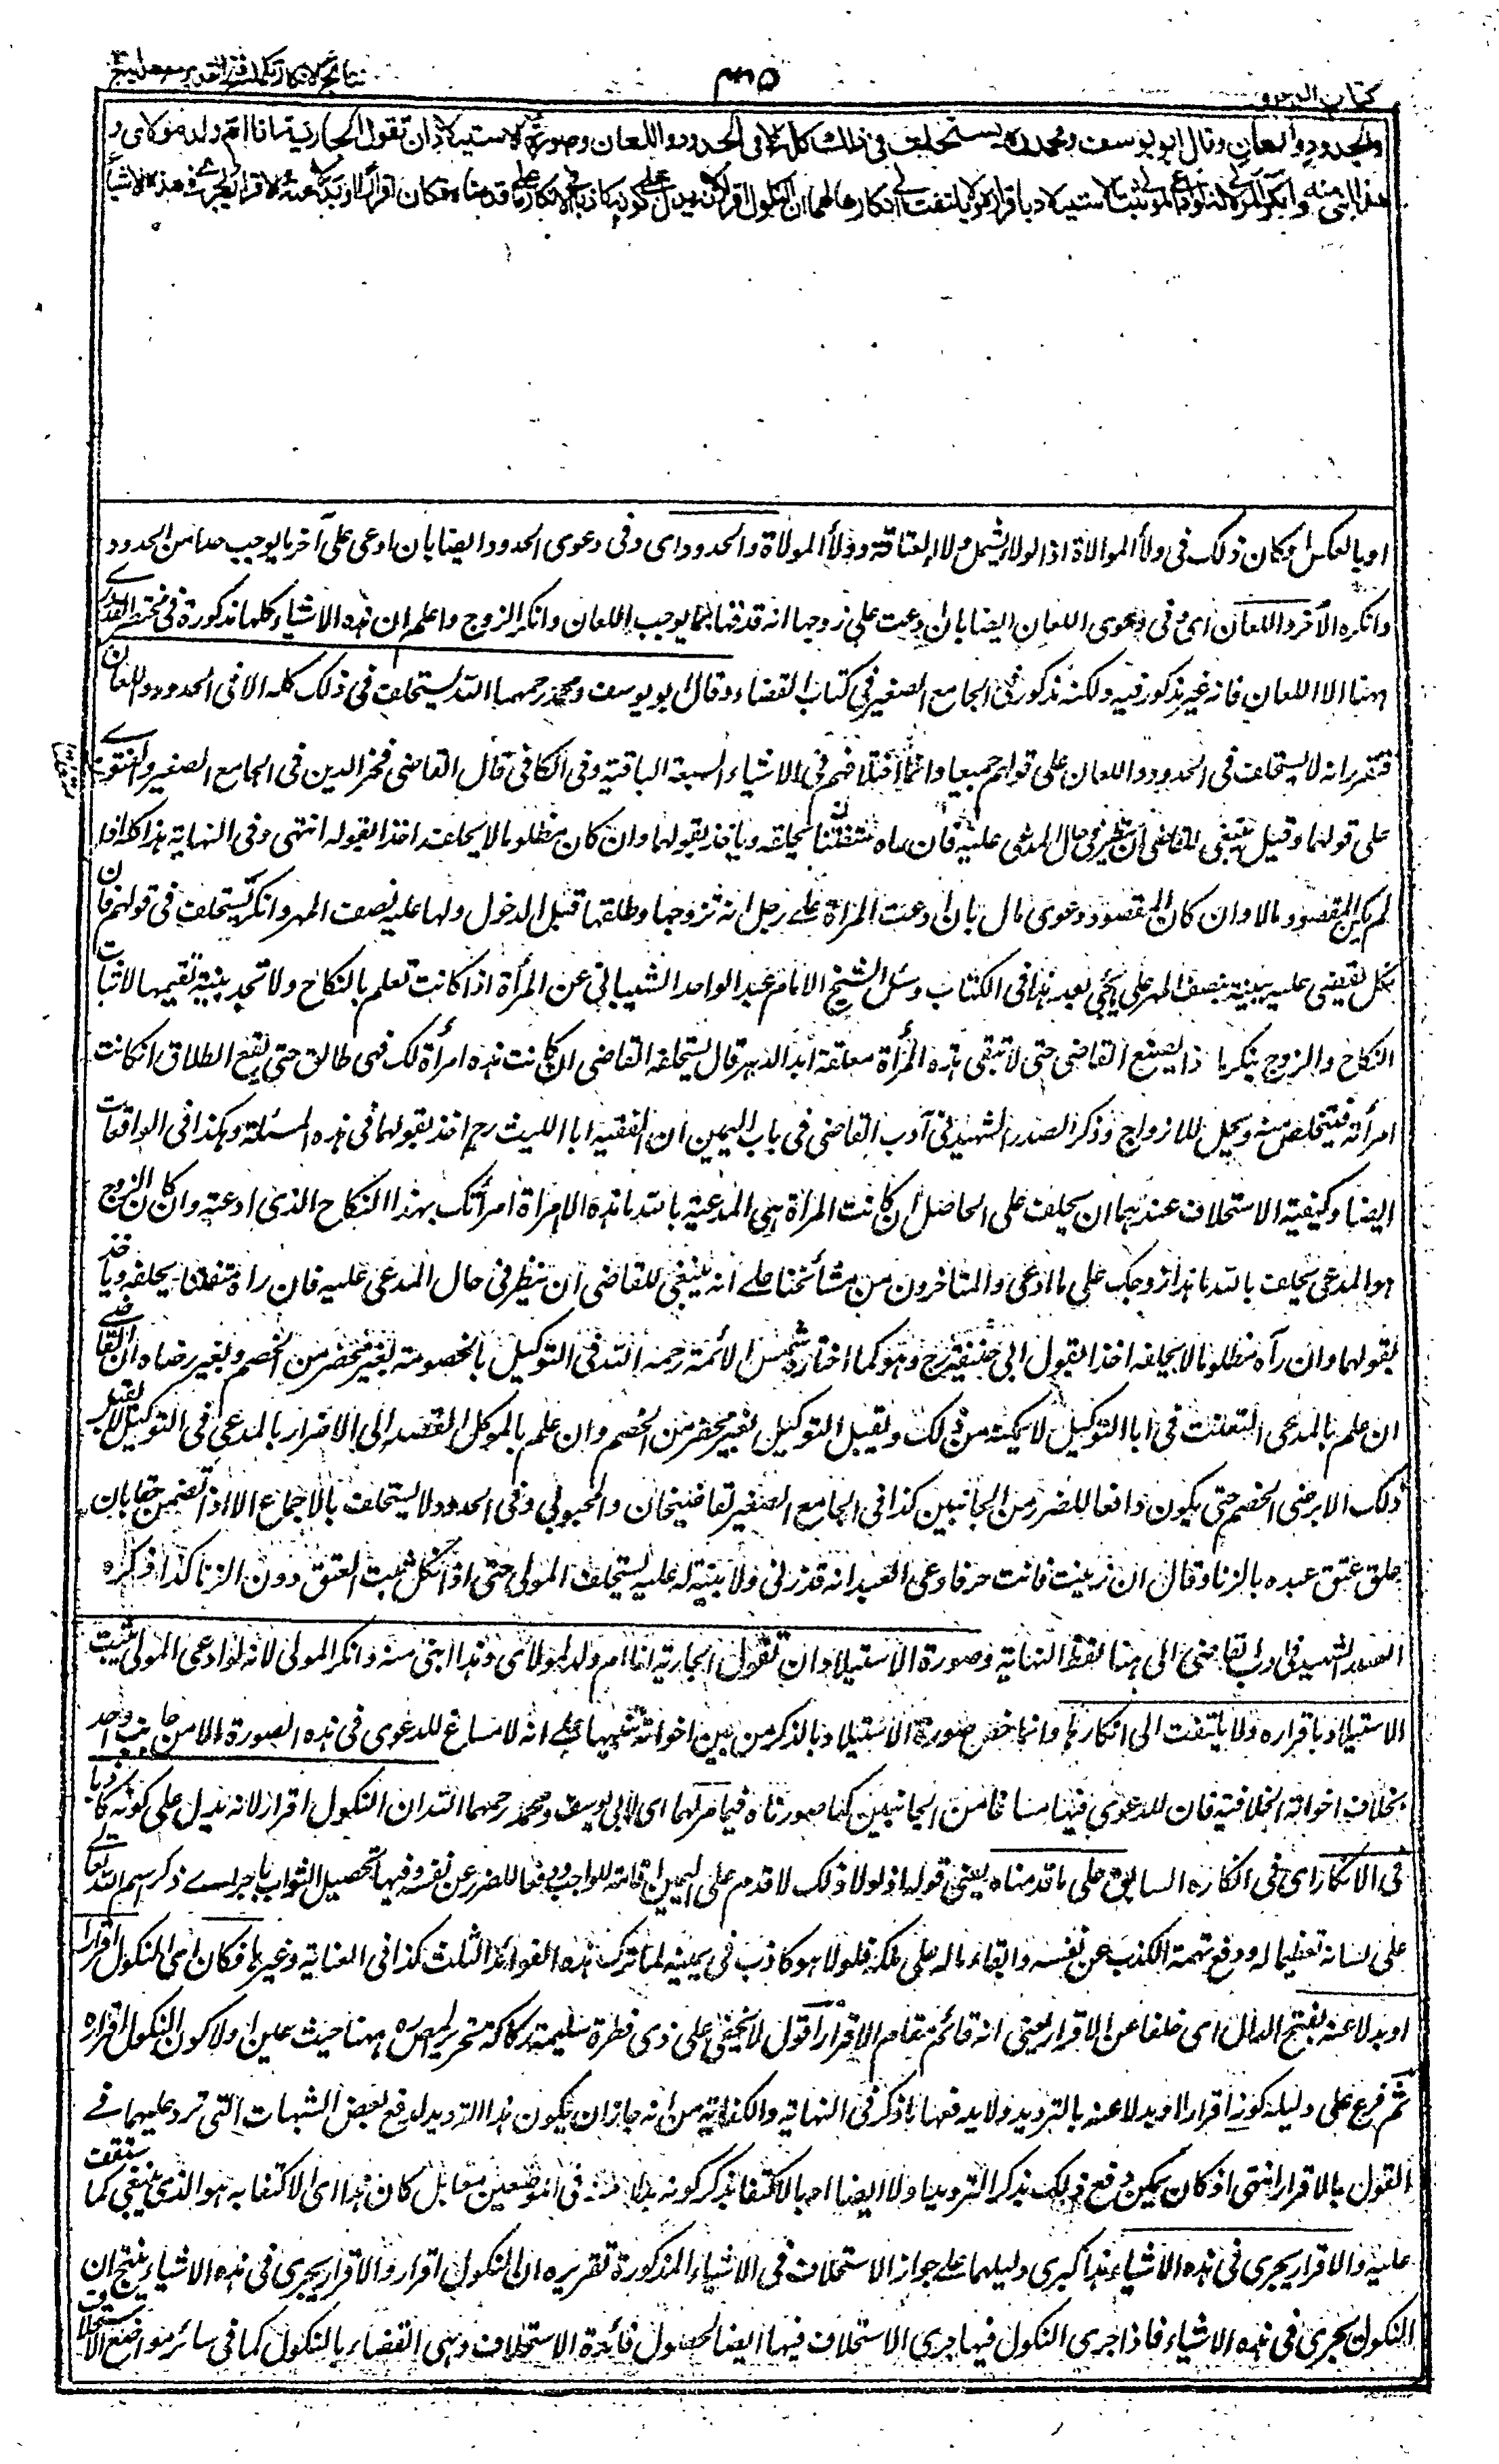 كتاب الدعوى
٣١٥
نتائج الافكار تكملة فتح القدير مع هداية ج ٣
والحدود واللعان وقال ابو يوسف ومحمد رح يستحلف في ذلك كله الا في الحدود واللعان وصورة الاستيلاد ان تقول الجارية انا ام ولد لمولاي و
هذا ابني منه وانكر المولى لانه لو ادعى المولى ثبت الاستيلاد باقراره ولا يلتفت الى انكارها لهما ان النكول اقرار لانه يدل على كونه كاذبا في الانكار على ما قدمناه فكان اقرارا او بدلا عنه والاقرار يجري في هذه الاشياء
او بالعكس او كان ذلك في ولاء الموالاة اذ الولاء يشمل ولاء العتاقة وولاء الموالاة والحدود اى وفى دعوى الحدود ايضا بان ادعى على آخر ما يوجب حدا من الحدود
وانكره الآخر واللعان اى وفى دعوى اللعان ايضا بان ادعت على زوجها انه قذفها بما يوجب اللعان وانكر الزوج واعلم ان هذه الاشياء كلها مذكورة فى مختصر القدورى
ههنا الا اللعان فانه غير مذكور فيه ولكنه مذكور فى الجامع الصغير فى كتاب القضاء وقال ابو يوسف ومحمد رحمهما الله يستحلف فى ذلك كله الا فى الحدود واللعان
فتقرر انه لا يستحلف فى الحدود واللعان على قولهم جميعا وانما اختلافهم فى الاشياء السبعة الباقية وفى الكافى قال القاضى فخر الدين فى الجامع الصغير والفتوى
على قولهما وقيل ينبغى للقاضى ان ينظر فى حال المدعى عليه فان راه متعنتا يحلفه وياخذ بقولهما وان كان مظلوما لا يحلفه اخذا بقوله انتهى وفى النهاية هذا كله اذا
لم يكن المقصود مالا وان كان المقصود دعوى مال بان ادعت المرأة على رجل انه تزوجها وطلقها قبل الدخول ولها عليه نصف المهر وانكر يستحلف فى قولهم فان
نكل يقضى عليه بنصف المهر على يجئ بعد هذا فى الكتاب وسئل الشيخ الامام عبد الواحد الشيبانى عن المرأة اذا كانت تعلم بالنكاح ولا تجد بينة تقيمها لاثبات
النكاح والزوج ينكر ما ذا يصنع القاضى حتى لا تبقى هذه المرأة معلقة ابد الدهر قال يستحلفه القاضى ان كانت هذه امرأة لك فهى طالق حتى يقع الطلاق ان كانت
امرأته فتتخلص منه ويحل للازواج وذكر الصدر الشهيد فى آدب القاضى فى باب اليمين ان الفقيه ابا الليث رح اخذ بقولهما فى هذه المسئلة وهكذا فى الواقعات
ايضا وكيفية الاستحلاف عندهما ان يحلف على الحاصل ان كانت المرأة هى المدعية بالله ما هذه الامرأة امرأتك بهذا النكاح الذى ادعته وان كان الزوج
هو المدعى تحلف بالله ما هذا زوجك على ما ادعى والمتاخرون من مشائخنا على انه ينبغى للقاضى ان ينظر فى حال المدعى عليه فان راه متعنتا يحلفه وياخذ
بقولهما وان رآه مظلوما لا يحلفه اخذا بقول ابى حنيفة رح وهو كما اختاره شمس الائمة رحمه الله فى التوكيل بالخصومة بغير محضر من الخصم وبغير رضاه ان القاضى
ان علم بالمدعى التعنت فى اباء التوكيل لا يمكنه من ذلك ويقبل التوكيل بغير محضر من الخصم وان علم بالموكل القصد الى الاضرار بالمدعى فى التوكيل لا يقبل
ذلك الا برضى الخصم حتى يكون دافعا للضرر من الجانبين كذا فى الجامع الصغير لقاضيخان والمحبوبى وفى الحدود لا يستحلف بالاجماع الا اذا تضمن حقا بان
علق عتق عبده بالزنا وقال ان زنيت فانت حر فادعى العبد انه قد زنى ولا بينة له عليه يستحلف المولى حتى اذا نكل ثبت العتق دون الزنا كذا ذكره
الصدر الشهيد فى ادب القاضى الى هنا لفظ النهاية وصورة الاستيلاد ان تقول الجارية انا ام ولد لمولاى وهذا ابنى منه وانكر المولى لانه لو ادعى المولى ثبت
الاستيلاد باقراره ولا يلتفت الى انكارها وانما خص صورة الاستيلاد بالذكر من بين اخواته تنبيها على انه لا مساغ للدعوى فى هذه الصورة الا من جانب واحد
بخلاف اخواته الخلافية فان للدعوى فيها مساغا من الجانبين كما صورناه فيما مر لهما اى لابى يوسف ومحمد رحمهما الله ان النكول اقرار لانه يدل على كونه كاذبا
فى الانكار اى فى انكاره السابق على ما قدمناه يعنى قوله اذ لولا ذلك لاقدم على اليمين اقامة للواجب ودفعا للضرر عن نفسه وفيها تحصيل الثواب باجراء ذكر اسم الله تعالى
على لسانه تعظيما له ودفع تهمة الكذب عن نفسه وابقاء ماله على ملكه فلولا هو كاذب فى يمينه لما ترك هذه الفوائد الثلث كذا فى العناية وغيرها فكان اى النكول اقرارا
او بدلا عنه بفتح الدال اى خلفا عن الاقرار يعنى انه قائم مقام الاقرار اقول لا يخفى على ذى فطرة سليمة ركاكة تحرير المص ره ههنا حيث علل اولا كون النكول اقراره
ثم فرع على دليله كونه اقرارا او بدلا عنه بالترديد ولا يدفعها ما ذكر فى النهاية والكفاية من انه جاز ان يكون هذا الترديد لدفع بعض الشبهات التى ترد عليهما فى
القول بالاقرار انتهى اذ كان يمكن دفع ذلك بذكر الترديد اولا ايضا او بالاكتفا بذكر كونه بدلا منه فى الموضعين مقابل كان هذا اى الاكتفا به هو الذى ينبغى كما ستقف
عليه والاقرار يجرى فى هذه الاشياء هذا كبرى دليلهما على جواز الاستحلاف فى الاشياء المذكورة تقريره ان النكول اقرار والاقرار يجرى فى هذه الاشياء ينتج ان
النكول يجرى فى هذه الاشياء فاذا جرى النكول فيها جرى الاستحلاف فيها ايضا لحصول فائدة الاستحلاف وهى القضاء بالنكول كما فى سائر مواضع الاستحلاف